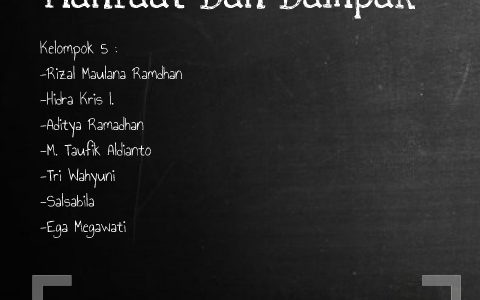 Manfaat Dan Dampak
Kelompok 5 :
-Rizal Maulana Ramdhan
-Hidra Kris I.
-Aditya Ramadhan
-M. Taufik Aldianto
-Tri Wahyuni
-Salsabila
-Ega Megawati